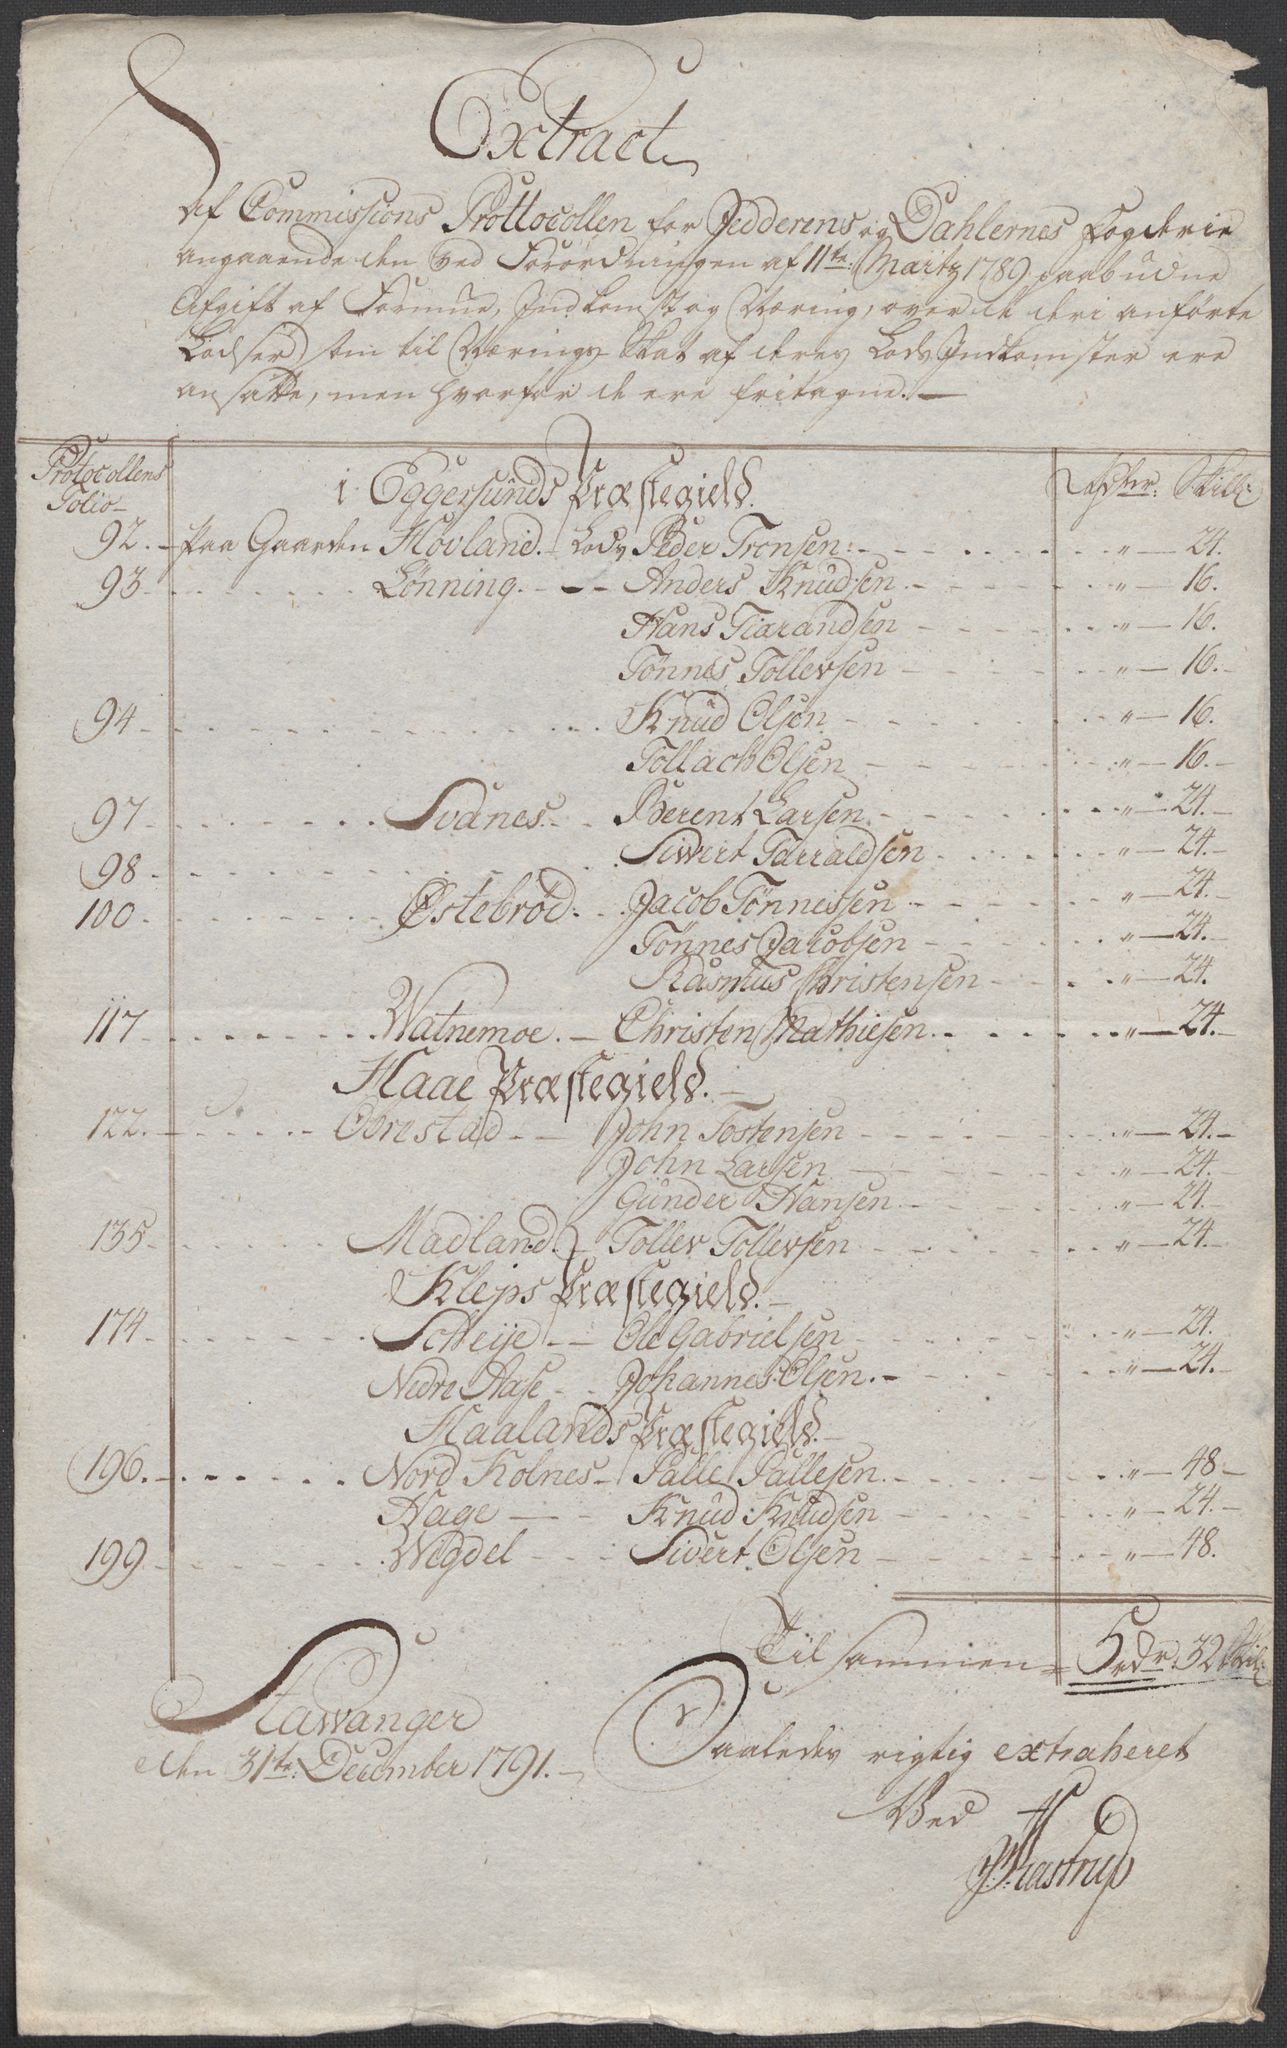 Extract
af Commissions Prottocollen for Jedderens og Dahlernes Fogderie
angaaende den ved Forordningen af 11te Martz 1789 paabudne
Afgift af Formue, Indkomst og Næring, over de deri anførte
Lodser som til Nærings Skat af deres Lods Indkomster ere
ansatte, men hvorfor de ere fritagne. —
Protocollens Folio
i Eggersunds Præstegield. Rdlr: Skill:
92. - paa Gaarden Hovland. - Lods Peder Tronsen: " — 24.
93 Lønning. Anders Knudsen " — 16.
Hans Tiarandsen " — 16.
Tønnes Tollevsen " — 16.
94 Knud Olsen " — 16.
Tollach Olsen " — 16.
97 Svanes. Berent Larsen " — 24.
98 Siwert Tarraldsen " — 24.
100 Østebrød. Jacob Tønnessen " — 24.
Tønnes Jacobsen " — 24.
Rasmus Christensen " — 24.
117 Watnemoe. — Christen Mathiesen " — 24.
Haae Præstegield. —
122. Obrestad John Tostensen " — 24.
John Larsen " — 24.
Gunder Hansen " — 24.
135 Madland. Tollev Tollevsen " — 24.
Kleps Præstegield. —
174 Scheije Ole Gabrielsen " — 24.
Nedre Aase Johannes Olsen. " — 24.
Haalands Præstegield. —
196. Nord Kolnes Palle Pallesen " — 48
Hage Knud Knudsen " — 24.
199 Wigdel Sivert Olsen " — 48.
Til sammen 5 rdr. 32 Skil:
Stawanger
den 31te December 1791. —
Saaledes rigtig extraheret
Ved